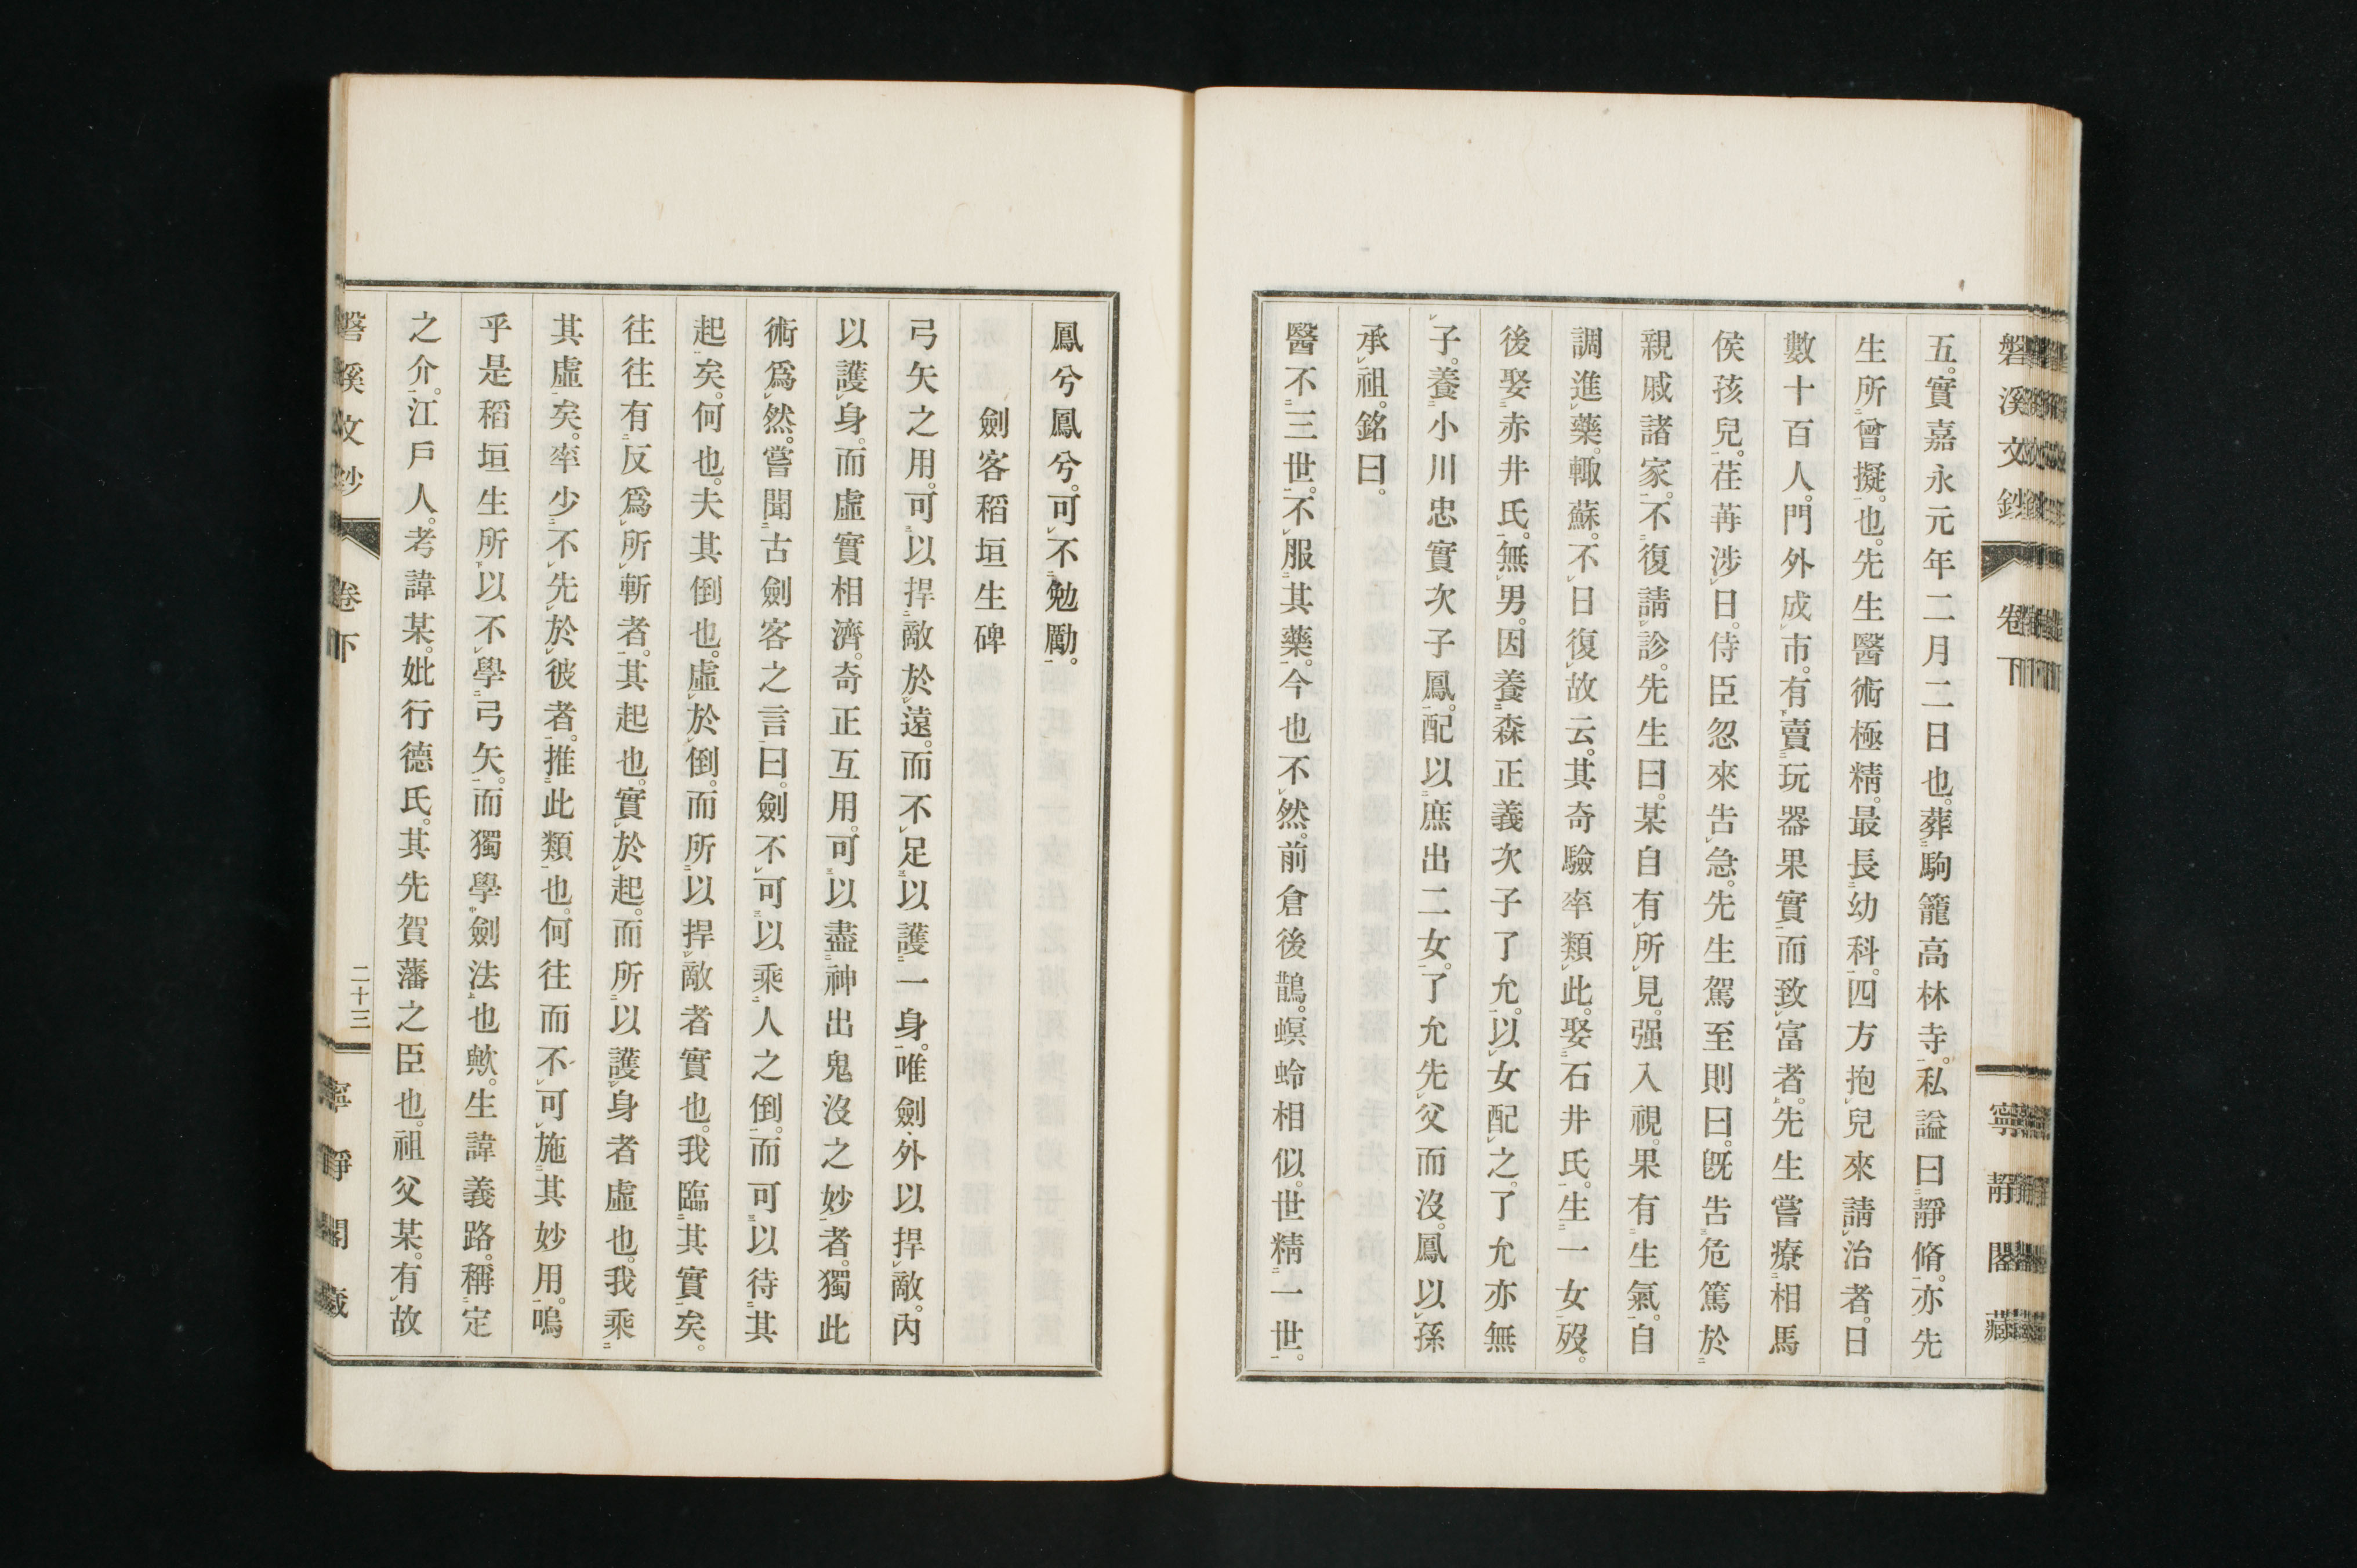 磐溪文鈔 卷下 寧靜閣藏
五。實嘉永元年二月二日也。葬駒籠高林寺。私謚曰靜脩。亦先
生所曾擬也。先生醫術極精。最長幼科。四方抱兒來請治者。日
數十百人。門外成市。有賣玩器果實而致富者。先生嘗療相馬
侯孩兒。荏苒涉日。侍臣忽來告急。先生駕至則曰。既告危篤於
親戚諸家。不復請診。先生曰。某自有所見。强入視。果有生氣。自
調進藥。輙蘇。不日復故云。其奇驗率類此。娶石井氏。生一女歿。
後娶赤井氏。無男。因養森正義次子了允。以女配之。了允亦無
子。養小川忠實次子鳳。配以庶出二女。了允先父而沒。鳳以孫
承祖。銘曰。
醫不三世。不服其藥。今也不然。前倉後鵲。螟蛉相似。世精一世。
鳳兮鳳兮。可不勉勵。
劍客稻垣生碑
弓矢之用。可以捍敵於遠。而不足以護一身。唯劍外以捍敵。內
以護身。而虛實相濟。奇正互用。可以盡神出鬼沒之妙者。獨此
術爲然。嘗聞古劍客之言曰。劍不可以乘人之倒。而可以待其
起矣。何也。夫其倒也。虛於倒。而所以捍敵者實也。我臨其實矣。
往往有反爲所斬者。其起也。實於起。而所以護身者虛也。我乘
其虛矣。率少不先於彼者。推此類也。何往而不可施其妙用。嗚
乎是稻垣生所以不學弓矢。而獨學劍法也歟。生諱義路。稱定
之介。江戶人。考諱某。妣行德氏。其先賀藩之臣也。祖父某。有故
磐溪文鈔 卷下 二十三 寧靜閣藏